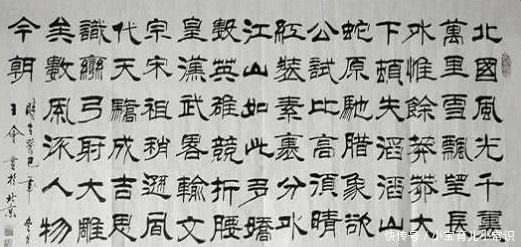 北國風光千里
萬里雪飄望長
外惟餘莽莽大
下頓失滔滔山
蛇原馳腊象欲
公試比高須晴
紅裝素裹分外
江山如此多嬌
數英雄競折腰
皇漢武畧輸文
宗宋祖稍遜風
代天驕成吉思
識彎弓射大雕
矣數風流人物
今朝
書於北京
快传号/小宝育儿小常识